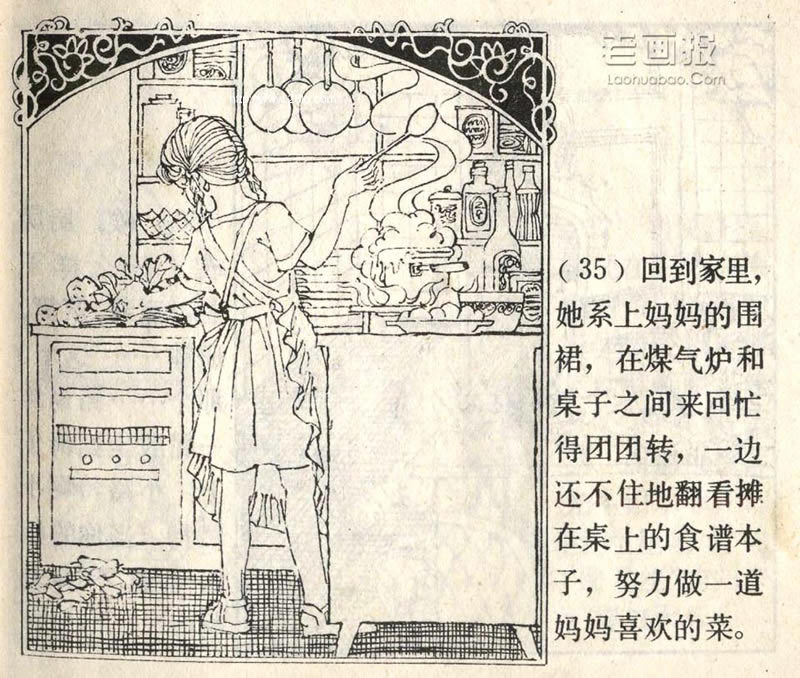 老画报
Laohuabao.Com
(35) 回到家里，
她系上妈妈的围
裙，在煤气炉和
桌子之间来回忙
得团团转，一边
还不住地翻看摊
在桌上的食谱本
子，努力做一道
妈妈喜欢的菜。